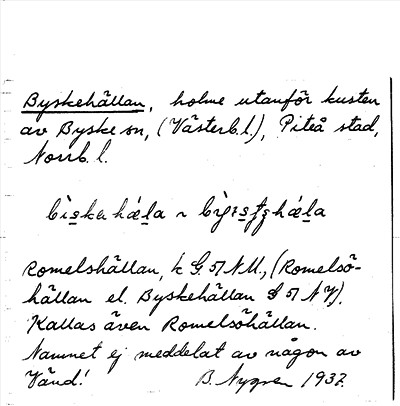 Byskehällan, holme utanför kusten
av Byske sn, (Västerb. l.), Piteå stad,
Norrb. l.
Romelshällan, k G. 51 N. U., (Romelsö-
hällan el. Byskehällan G 51 N Y).
Kallas även Romelsöhällan.
Namnet ej meddelat av någon av
Vänd! B. Nygren 1937.